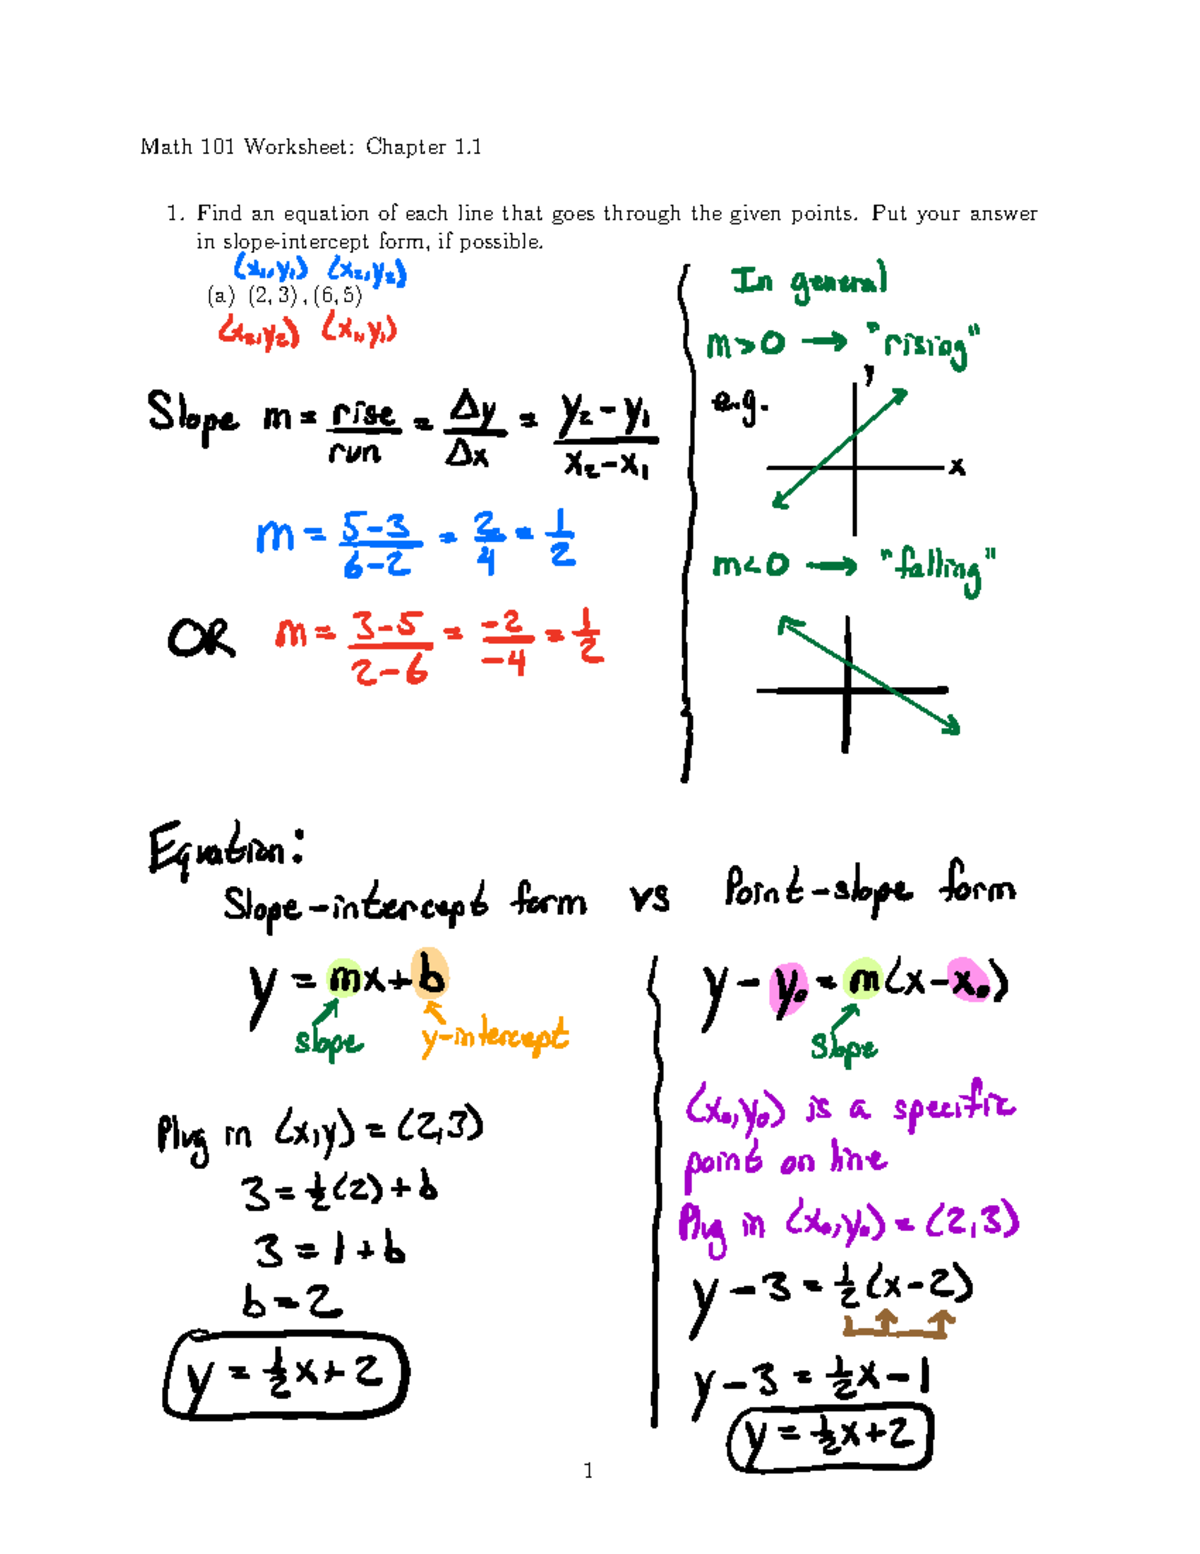 Math 101 Worksheet: Chapter 1.1
1. Find an equation of each line that goes through the given points. Put your answer
in slope-intercept form, if possible.
(x₁,y₁) (x₂,y₂)
(a) (2, 3) , (6, 5)
(x₂,y₂) (x₁,y₁)
Slope m = rise/run = Δy/Δx = y₂-y₁/x₂-x₁
m = 5-3/6-2 = 2/4 = 1/2
OR m = 3-5/2-6 = -2/-4 = 1/2
In general
m>0 → "rising"
e.g.
y
x
m<0 → "falling"
Equation:
Slope-intercept form vs Point-slope form
y = mx+b
slope
y-intercept
Plug in (x,y) = (2,3)
3 = 1/2(2) + b
3 = 1 + b
b = 2
y = 1/2x + 2
y - y₀ = m(x-x₀)
slope
(x₀,y₀) is a specific
point on line
Plug in (x₀,y₀) = (2,3)
y - 3 = 1/2(x-2)
y - 3 = 1/2x - 1
y = 1/2x+2
1